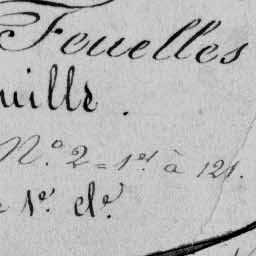 Feuelles
uille.
N.o 2 = 1er à 121.
1e. cl.e